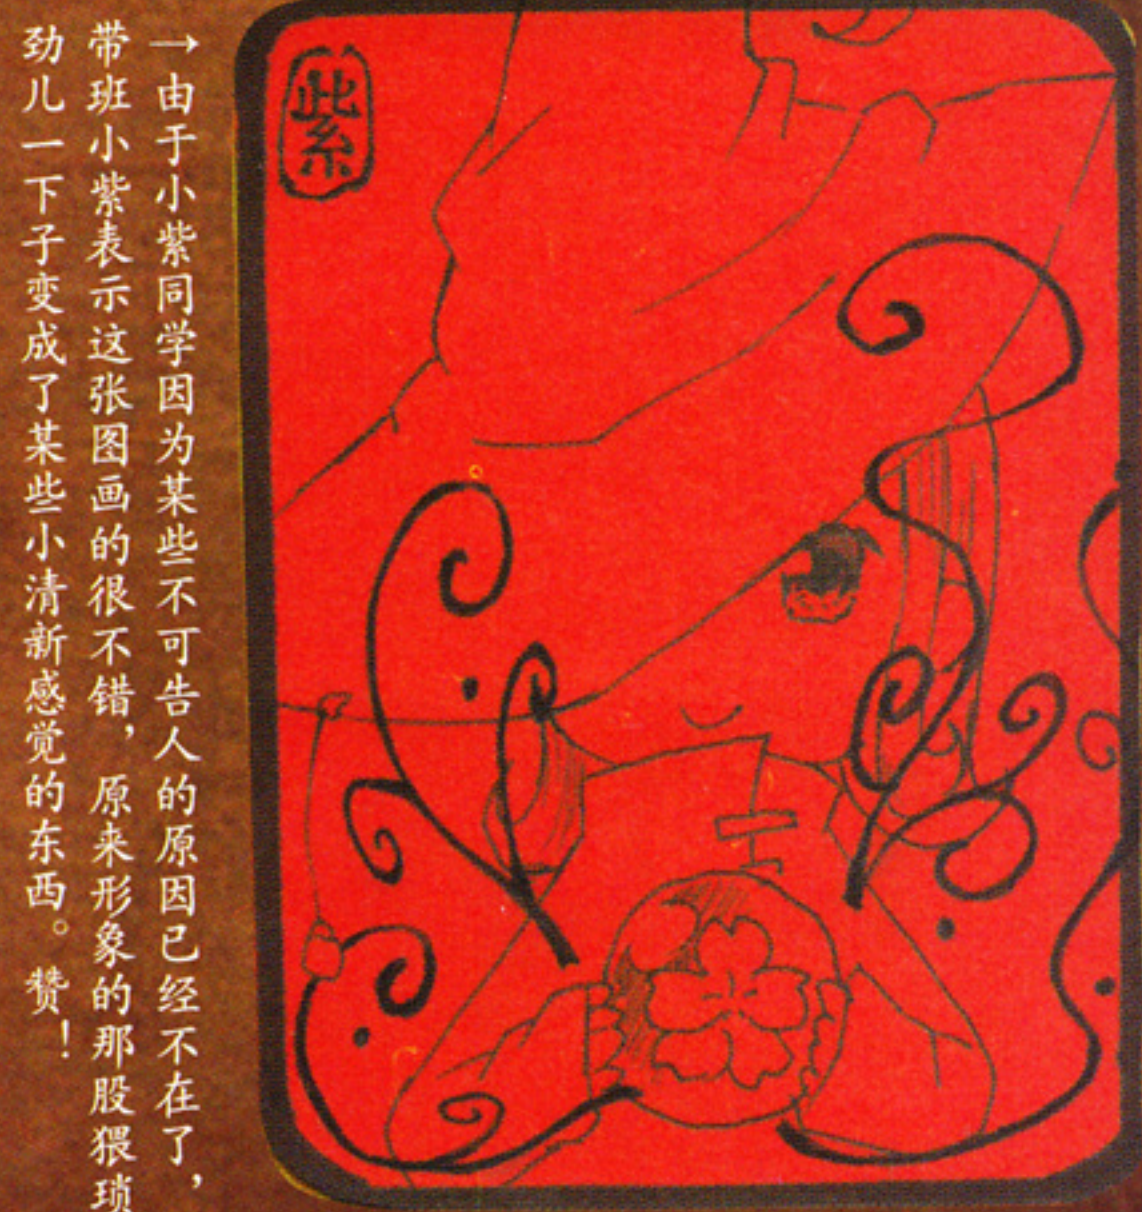 →由于小紫同学因为某些不可告人的原因已经不在了，
带班小紫表示这张图画的很不错，原来形象的那股猥琐
劲儿一下子变成了某些小清新感觉的东西。赞！
紫